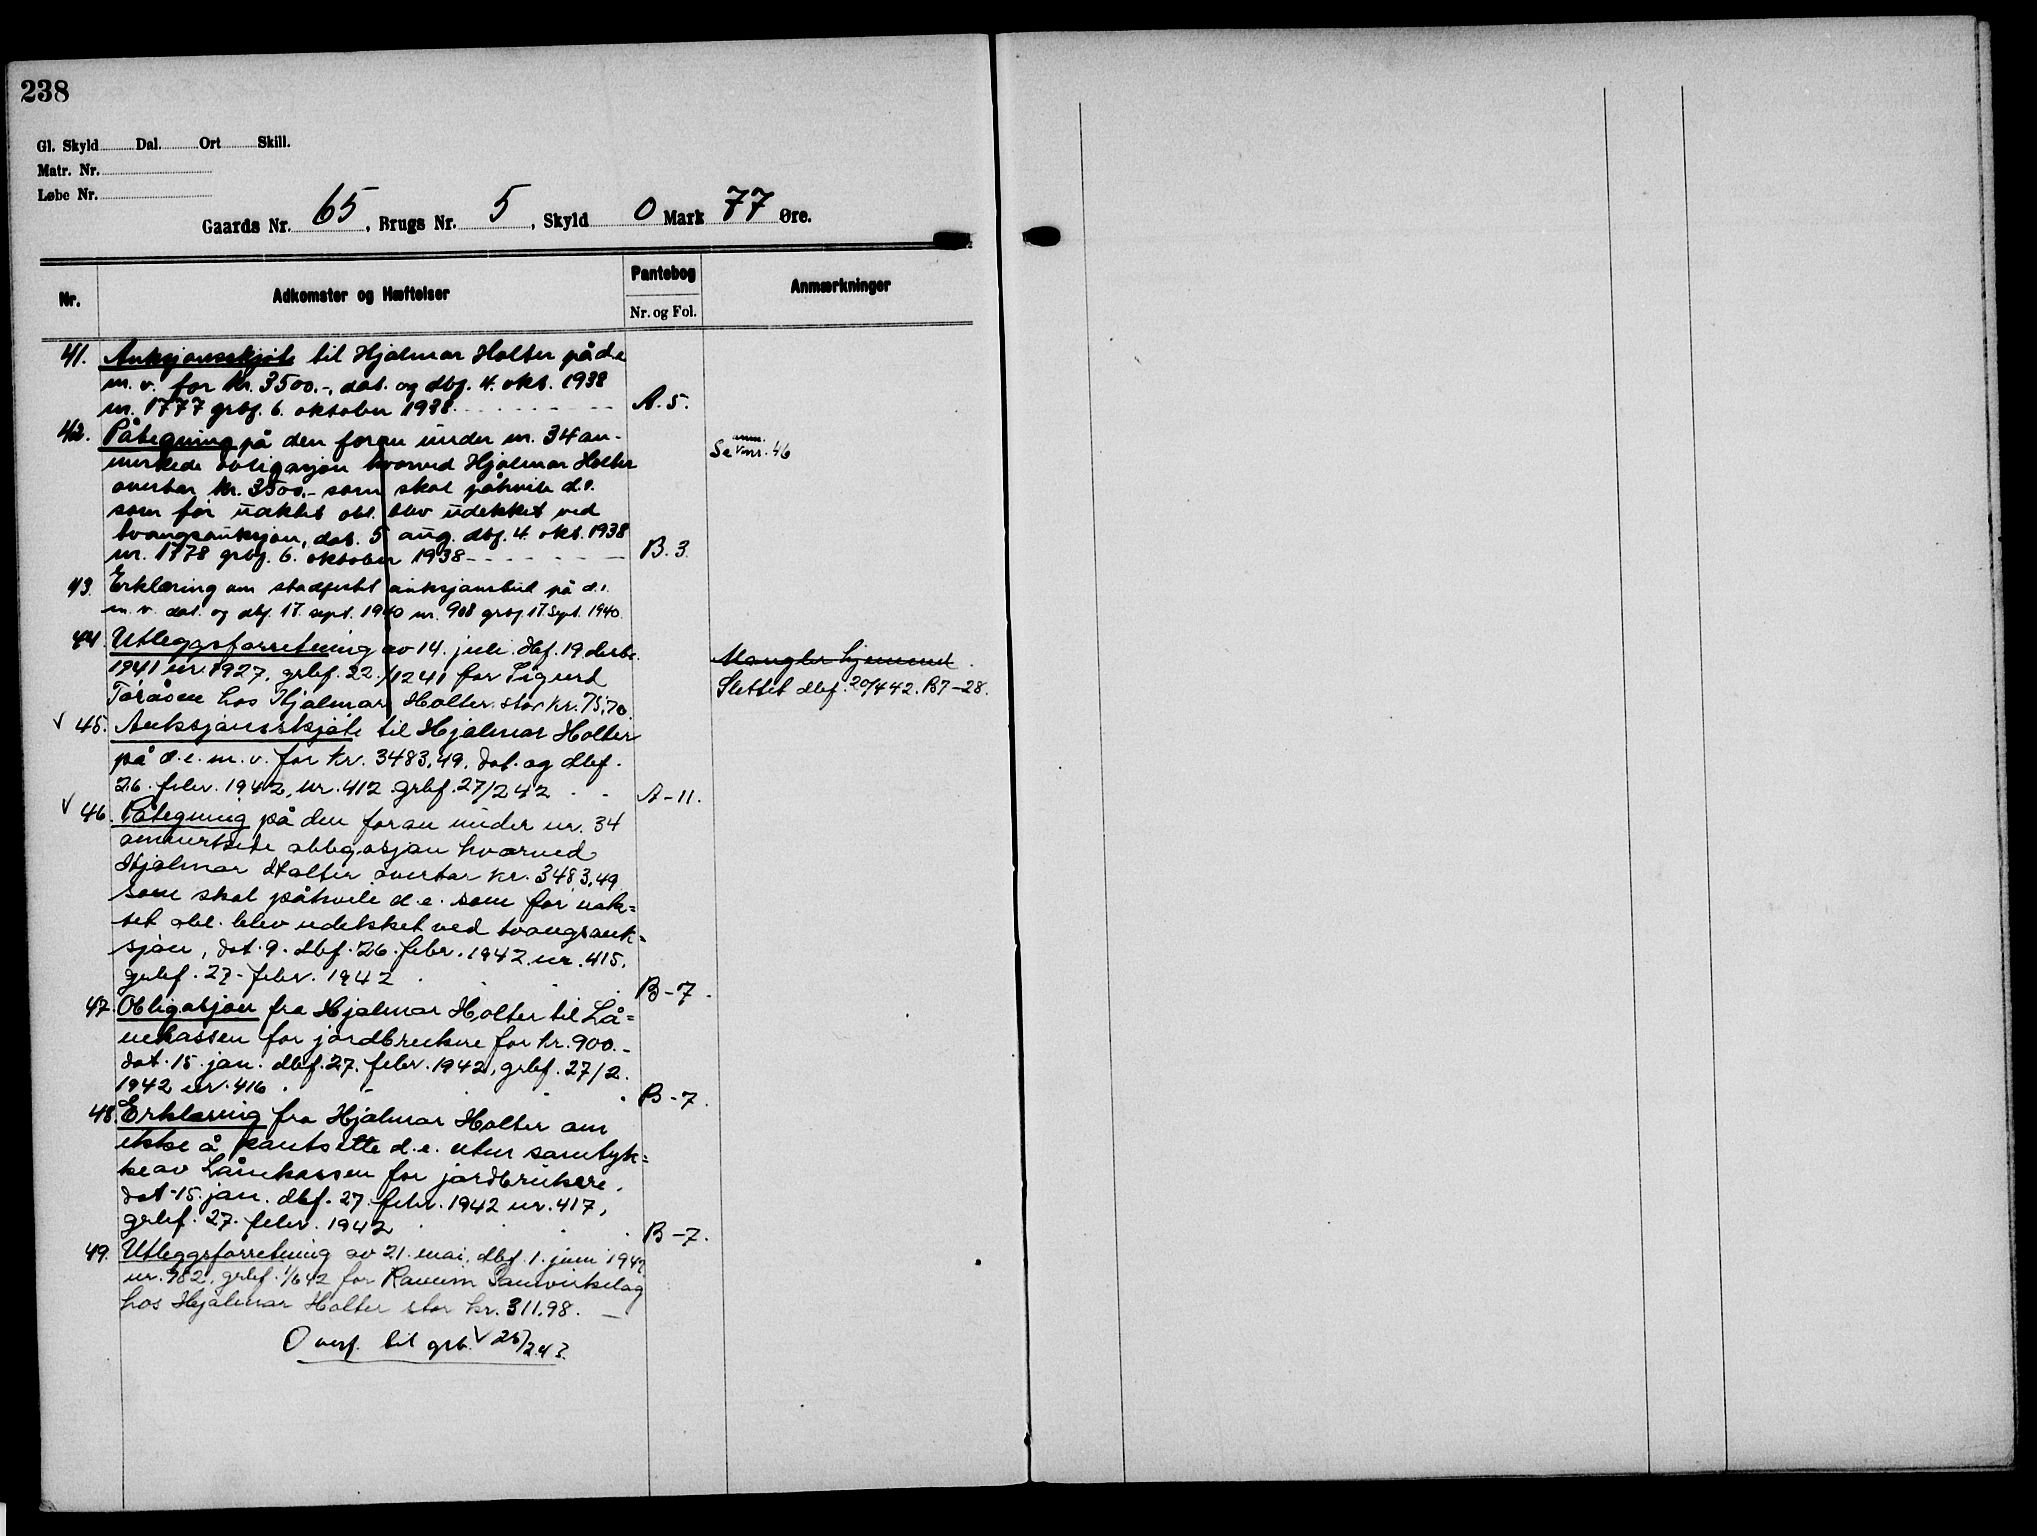 238
Gl. Skyld Dal. Ort Skill.
Matr. Nr.
Løbe Nr.
Gaards Nr. 65, Brugs Nr. 5, Skyld 0 Mark 77 Øre.
Nr. Adkomster og Hæftelser Pantebog Nr. og Fol. Anmærkninger
41. Auksjonsskjøte til Hjalmar Holter på d.e.
m. v. for kr. 3500.-, dat. og dbf. 4. okt. 1938
nr. 1777 grbf. 6. oktober 1938 A. 5.
42. Påtegning på den foran under nr. 34 an-
merkede obligasjon hvorved Hjalmar Holter
overtar kr. 3500.- som skal påhvile d.e.
som før uaktet obl. blev udekket ved
tvangsauksjon, dat. 5 aug. dbf. 4. okt. 1938
nr. 1778 grbf. 6. oktober 1938 B. 3.
Se anm. nr. 46
43. Erklæring om stadfestet auksjonsbud på d.e.
m. v. dat. og dbf. 17. sept. 1940 nr. 908 grbf 17. Sept. 1940.
44. Utleggsforretning av 14. juli. dbf. 19. desbr.
1941 nr. 1927, grbf. 22./1241 for Sigurd
Toråsen hos Hjalmar Holter stor kr. 75,70.
Mangler hjemmel.
Slettet dbf. 20/4 42. B7-28.
√ 45. Auksjonsskjøte til Hjalmar Holter
på d.e. m. v. for kr. 3483,49. dat. og dbf.
26. febr. 1942, nr. 412 grbf. 27/2 42 A-11.
√ 46. Påtegning på den foran under nr. 34
anmerkede obligasjon hvorved
Hjalmar Holter overtar kr. 3483,49
som skal påhvile d.e. som før uak=
tet obl. blev udekket ved tvangsauk=
sjon, dat. 9. dbf. 26. febr. 1942 nr. 415.
grbf. 27. febr. 1942 B-7.
47. Obligasjon fra Hjalmar Holter til Lå=
nekassen for jordbrukere for kr. 900.-
dat. 15. jan. dbf. 27. febr. 1942, grbf. 27/2.
1942 nr. 416 B-7.
48. Erklæring fra Hjalmar Holter om
ikke å pantsette d.e. uten samtyk=
ke av Lånekassen for jordbrukere.
dat. 15. jan. dbf. 27. febr. 1942 nr. 417,
grbf. 27. febr. 1942 B-7.
49. Utleggsforretning av 21. mai, dbf. 1. juni 1942
nr. 982, grbf. 1/6 42 for Samvirkelag
hos Hjalmar Holter stor kr. 311.98.
Overf. til grb. V 25/2 43.